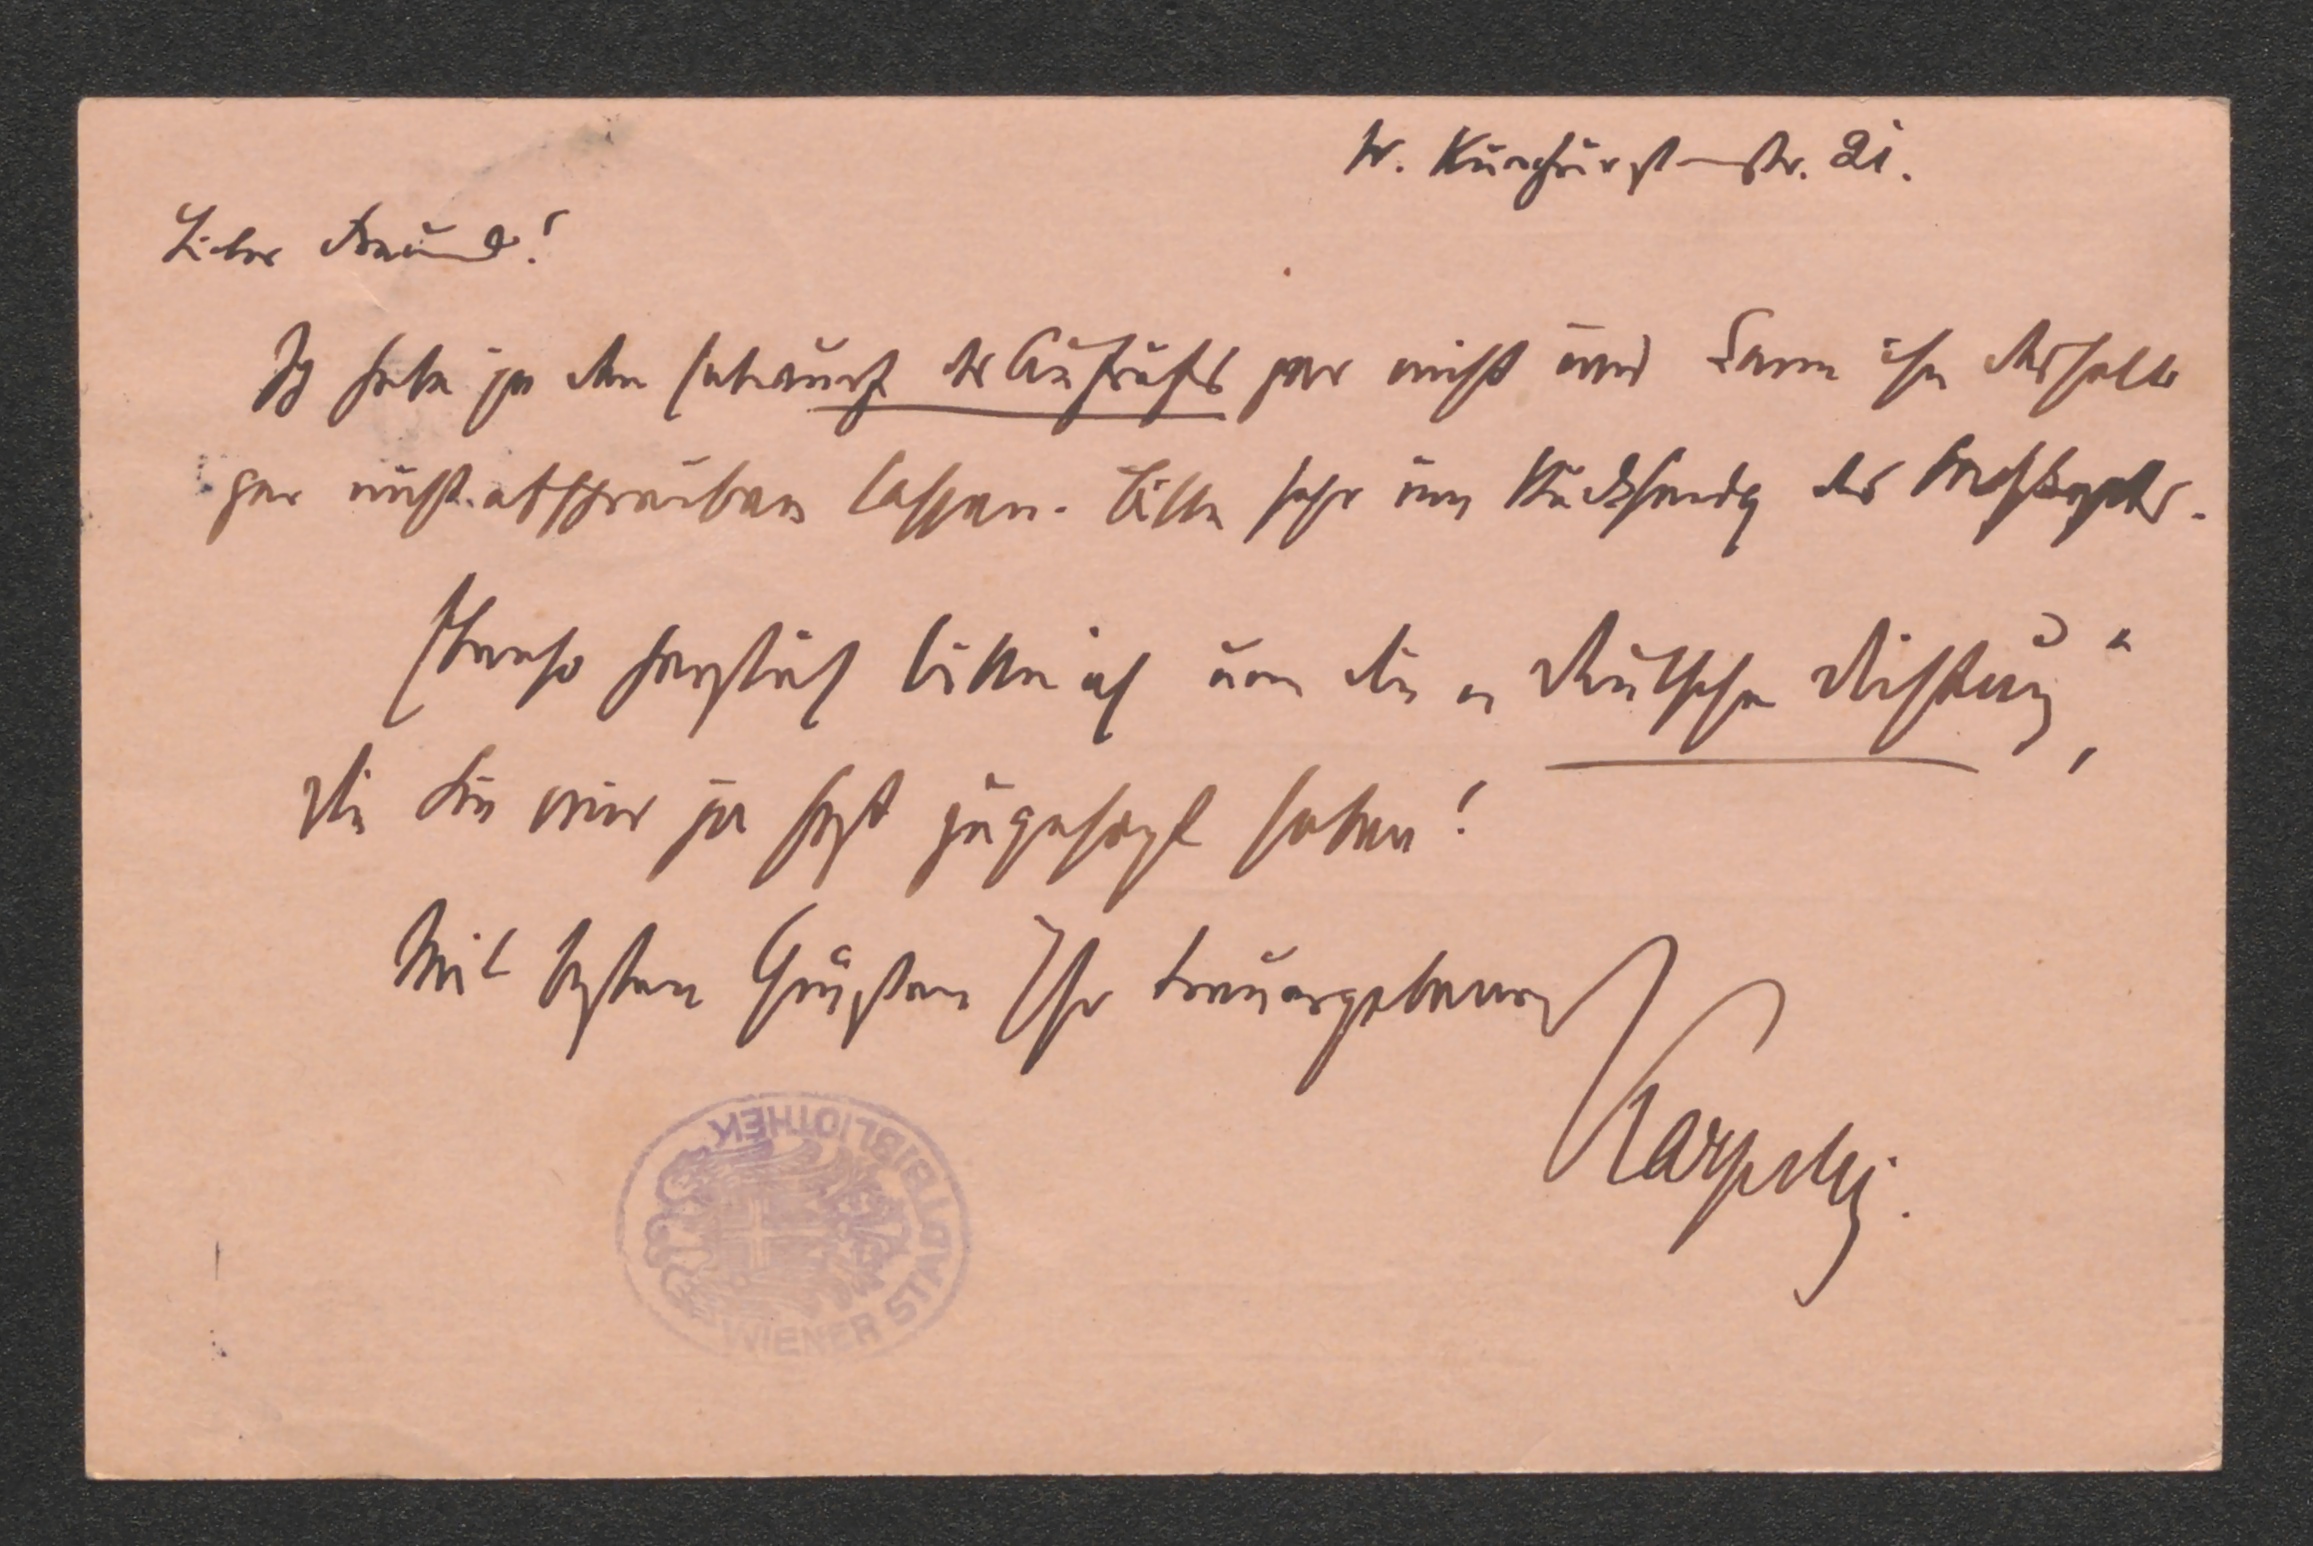 W. Kurfürstenstr. 21.
Lieber Freund!
Ich habe ja den Entwurf des Aufrufes gar nicht und kann ihn deshalb
gar nicht abschreiben lassen. Bitte sehr um Rücksendg des
Ebenso herzlich bitte ich um die „Deutsche Dichtung“,
die Sie mir ja fest zugesagt haben!
Mit besten Grüßen Ihr treuergebener
Karpeles.
WIENER STADTBIBLIOTHEK